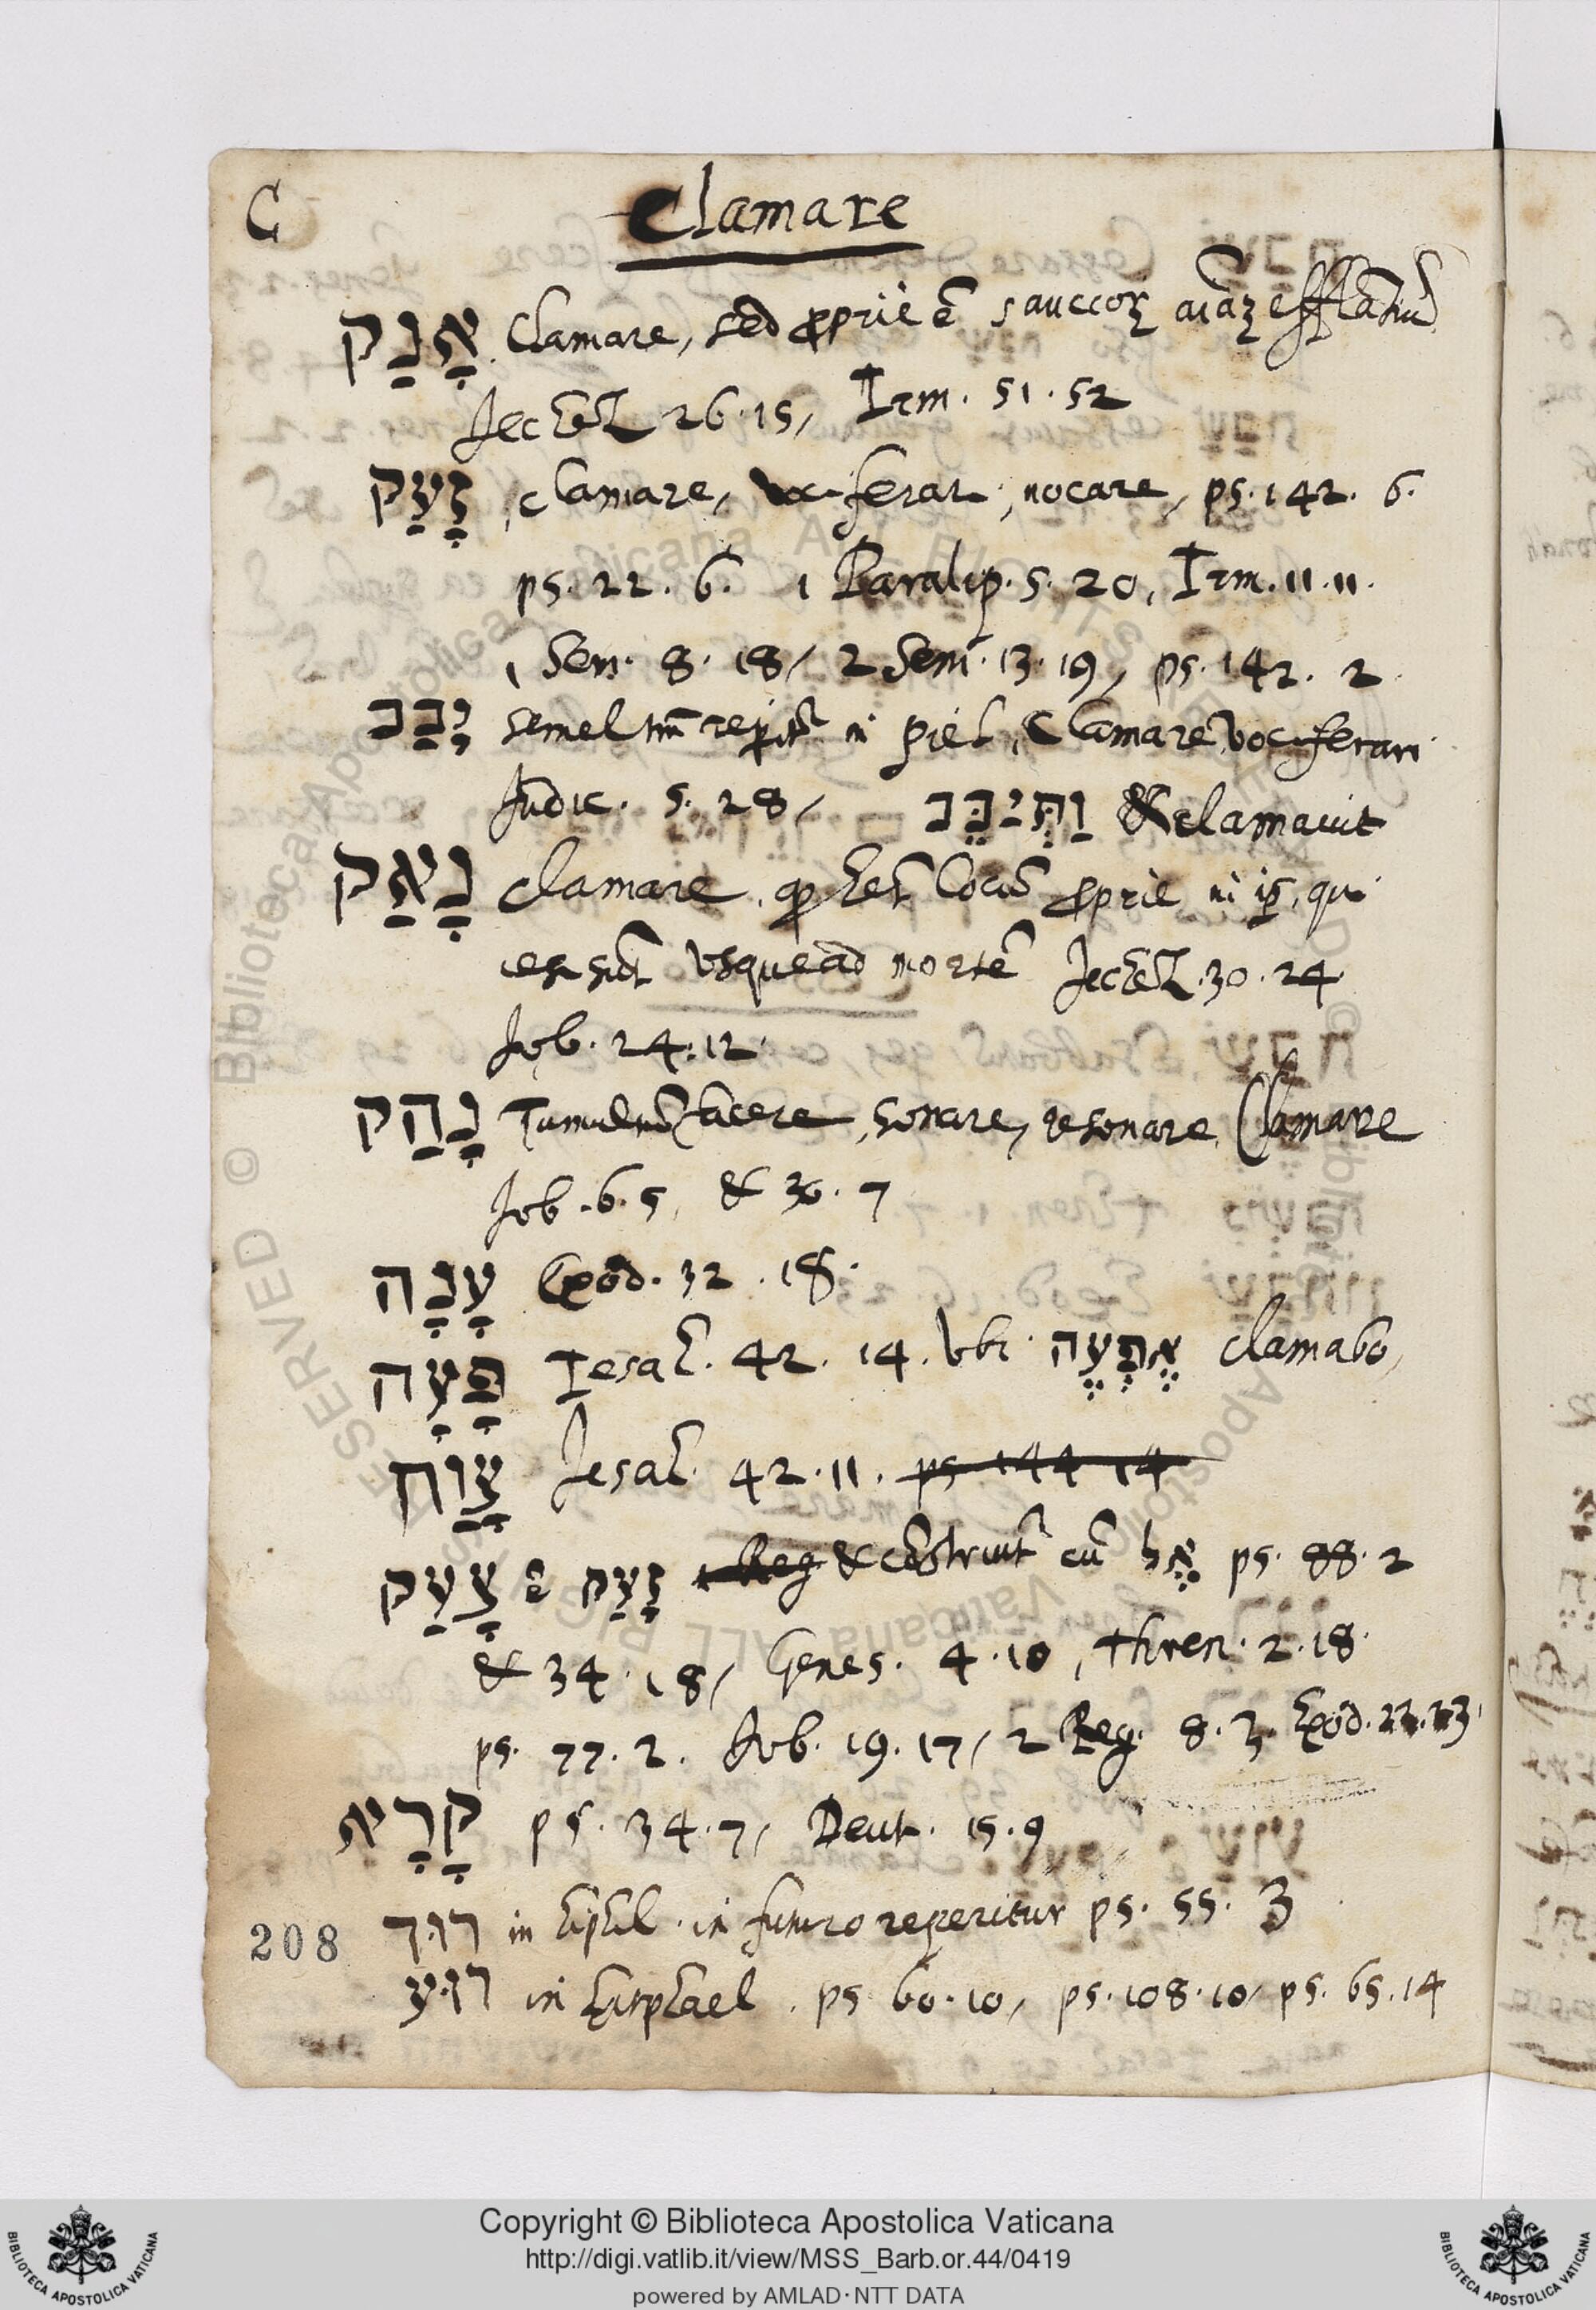 C
Clamare
אָנַק Clamare, sed proprie ē saucior aiāȝ efflātiū
Jechezl 26.15, Irm. 51.52
זָעַק, clamare, vociferari, vocare, ps. 142. 6.
ps. 22. 6. 1 Paralip. 5. 20, Irm. 11. 11.
1 Sem. 8. 18, 2 Sem. 13. 19, ps. 142. 2
יָבַב semel tm̄ reperitr in piel, Clamare, vociferari
Judic. 5. 28, וַתְּיַבֵּב & clamavit
נָאַק clamare, locū proprie in ijs, qui
usque ad mortē Jechezl. 30. 24
Job. 24. 12.
נָהַק Tumultū facere, sonare, resonare, Clamare
Job. 6. 5, & 30. 7
עָנָה Exod. 32. 18.
פָּעָה Iesah. 42. 14. ubi אֶפְעֶה clamabo,
צָוַח Jesah. 42. 11. ps 144 14
צָעַק ē זָעַק 1 Reg & cōstruitr cū אֶל ps. 88. 2
& 34. 18, Genes. 4. 10, Thren. 2. 18.
ps. 77. 2. Job. 19. 17, 2 Reg. 8. 3. Exod. 22. 23.
קָרָא ps. 34. 7, Deut. 15. 9
רוּד in hiphil. in futuro reperitur ps. 55. 3
208
רוּע in hithpael. ps 60. 10, ps. 108. 10, ps. 65. 14
© Biblioteca Apostolica Vaticana ALL RIGHTS RESERVED
Copyright © Biblioteca Apostolica Vaticana
http://digi.vatlib.it/view/MSS_Barb.or.44/0419
powered by AMLAD·NTT DATA
BIBLIOTECA APOSTOLICA VATICANA
BIBLIOTECA APOSTOLICA VATICANA